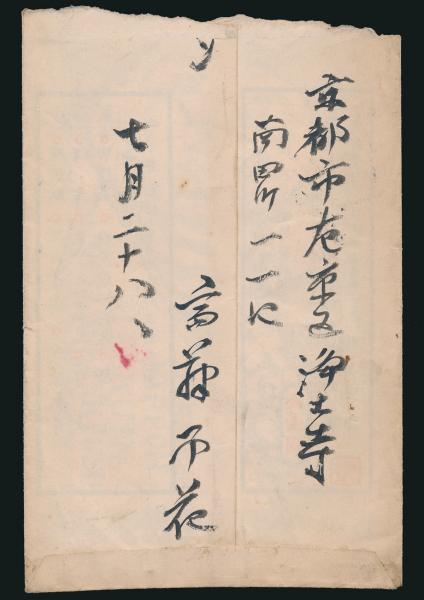 〆
京都市左京区浄土寺
南田町一一
花
七月二十八日